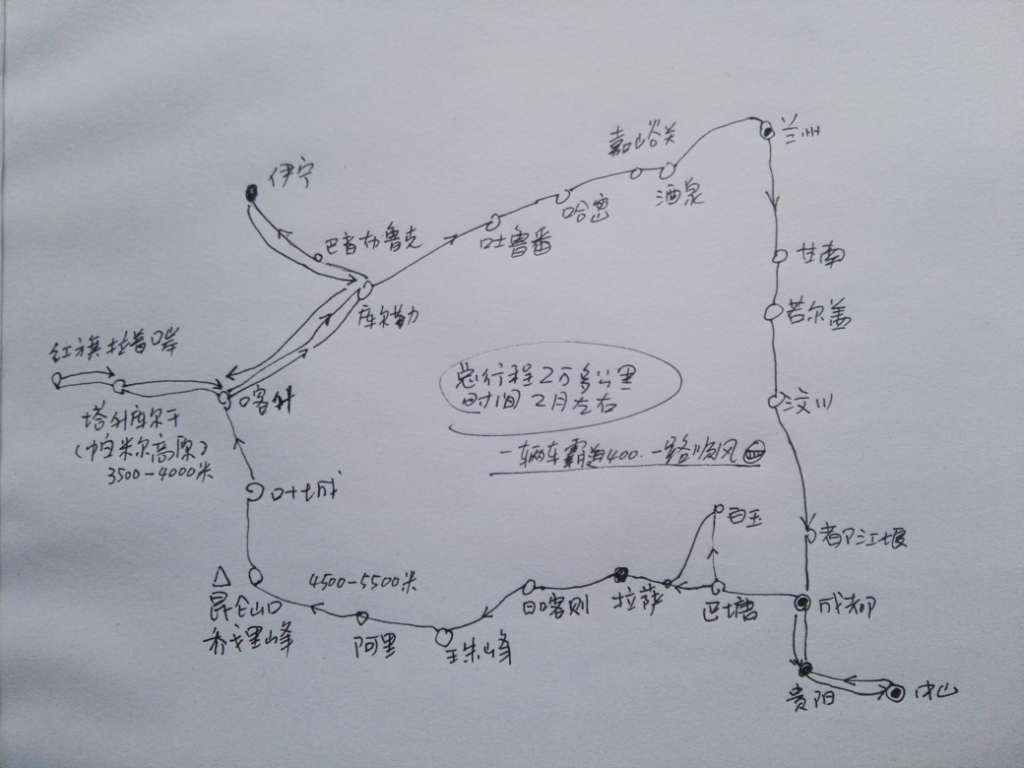 兰州
嘉峪关
酒泉
伊宁
哈密
巴音布鲁克
吐鲁番
甘南
库尔勒
若尔盖
红旗拉普口岸
总行程2万多公里
时间2月左右
喀什
汶川
塔什库尔干
(帕米尔高原)
3500-4000米
一辆车霸道400.一路顺风
叶城
白玉
都江堰
4500-5500米
昆仑山口
乔戈里峰
日喀则
拉萨
巴塘
成都
阿里
珠峰
贵阳
中山